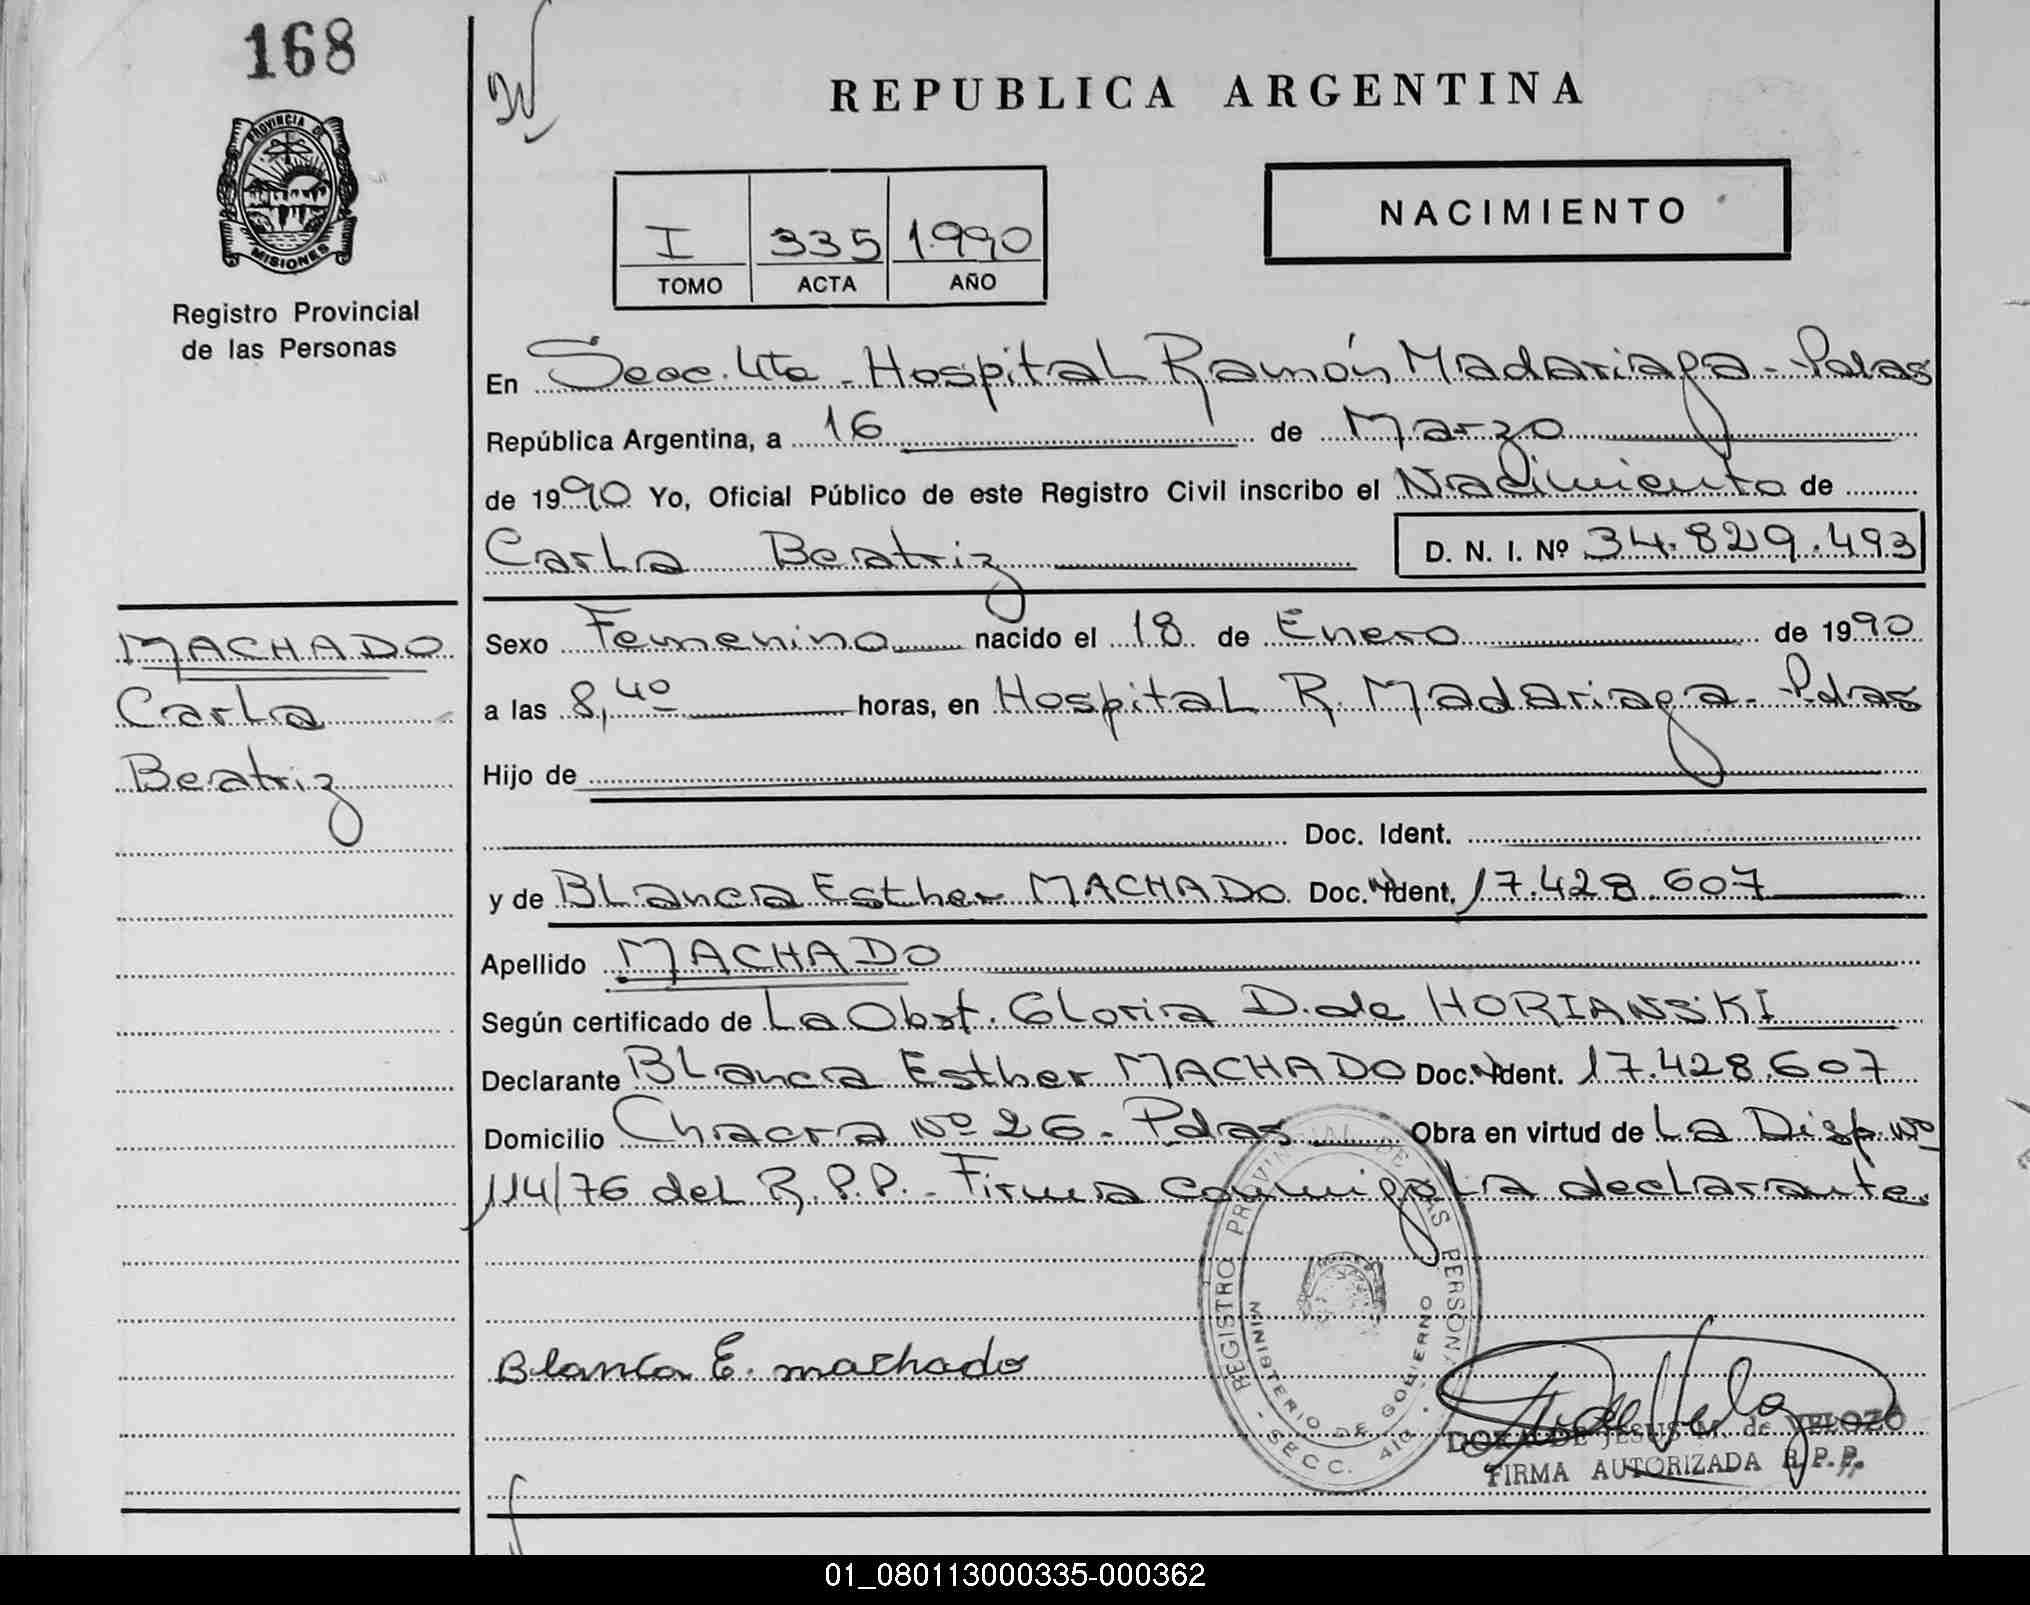 168
PROVINCIA DE
MISIONES
Registro Provincial
de las Personas
REPUBLICA ARGENTINA
I 335 1.990
TOMO ACTA AÑO
NACIMIENTO
En Secc. 4ta - Hospital Ramón Madariaga - Pdas
República Argentina, a 16 de Marzo
de 1990 Yo, Oficial Público de este Registro Civil inscribo el Nacimiento de
Carla Beatriz D. N. I. Nº 34.829.493
MACHADO
Carla
Beatriz
Sexo Femenino nacido el 18 de Enero de 1990
a las 8,40 horas, en Hospital R. Madariaga - Pdas
Hijo de
Doc. Ident.
y de Blanca Esther MACHADO Doc. Ident. 17.428.607
Apellido MACHADO
Según certificado de La Obst. Gloria D. de HORIANSKI
Declarante Blanca Esther MACHADO Doc. Ident. 17.428.607
Domicilio Chacra Nº 26 - Pdas Obra en virtud de La Disp. Nº
114/76 del R.P.P. - Firma conmigo La declarante.
REGISTRO PROVINCIAL DE LAS PERSONAS
MINISTERIO DE GOBIERNO
- SECC. 4ta -
Blanca E. machado
DORA DE JESUS M. de VELOZO
FIRMA AUTORIZADA R.P.P.
01_080113000335-000362